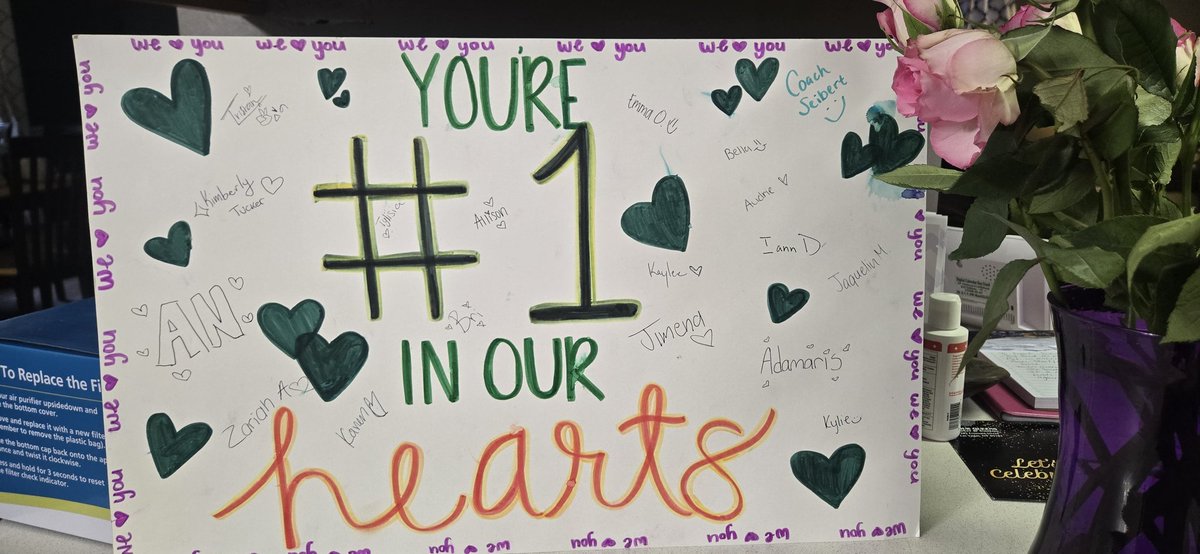 we you we you we you we you we you we
YOU'RE
#1
IN OUR
hearts
Coach
Seibert
Tristan
Emma O.
Bella
Kimberly
Tucker
Allison
Audrie
Iann D
Kaylee
Jaquelin M.
AN
Bri
Jimena
Adamaris
Zariah A
Karen
Kylie
we you
we you
we you
we you
we you
you
we you
we you
we you we you we you we you
To Replace the Fi
our air purifier upsidedown and
the bottom cover.
ove and replace it with a new filte
ember to remove the plastic bag).
e the bottom cap back onto the ap
ance and twist it clockwise.
ess and hold for 3 seconds to reset
e filter check indicator.
Let's
Celebr